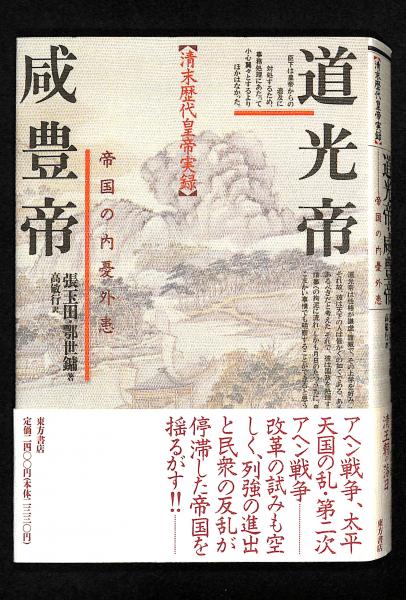 道光帝
臣下は皇帝からの
追及に
対処するため、
事務処理にあたって
小心翼々とするより
ほかはなかった。
【清末歴代皇帝実録】
咸豊帝
帝国の内憂外患
張玉田・鄂世鏞著
高敏行訳
アヘン戦争、太平
天国の乱・第二次
アヘン戦争……
改革の試みも空
しく、列強の進出
と民衆の反乱が
停滞した帝国を
揺るがす!!
東方書店
定価二四〇〇円(本体二三三〇円)
【清末歴代皇帝実録】
道光帝・咸豊帝
帝国の内憂外患
東方書店